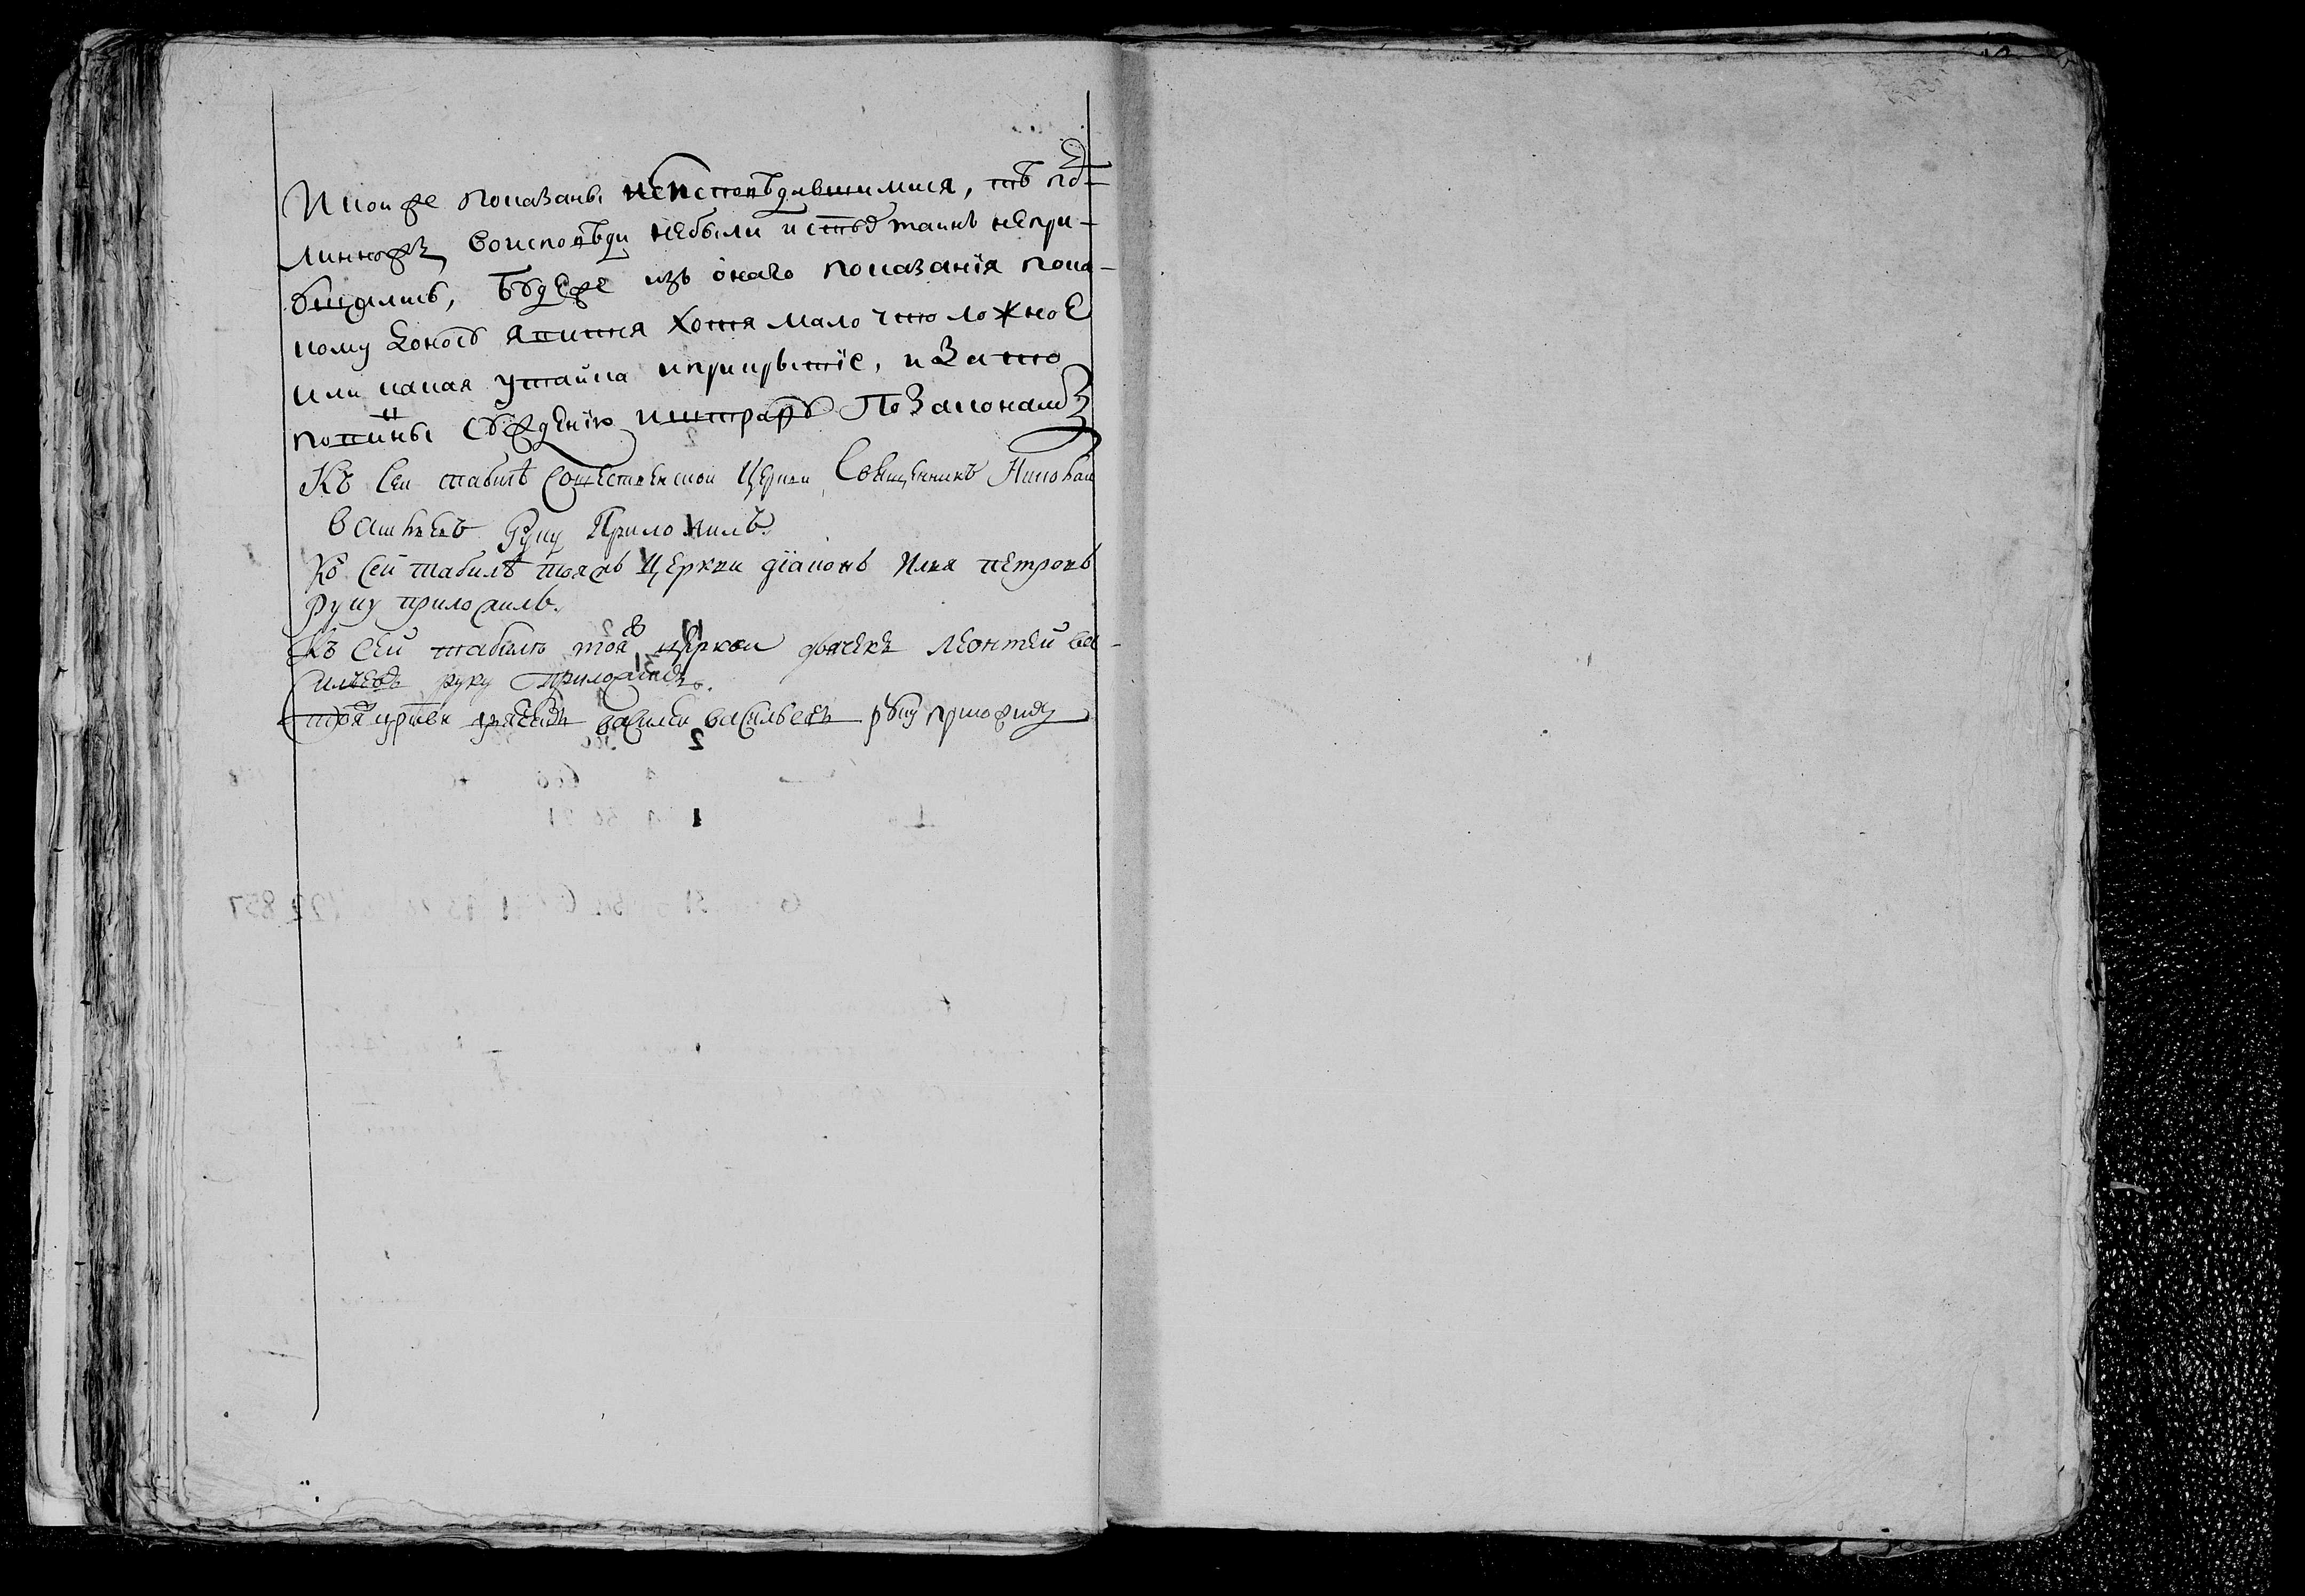 И кои же показаны неисповѣдавшимися, тѣ под-
линнож во исповѣди небыли и стых таинъ непри-
общались, Буде же изъ онаго показанїя пока-
кому явится хотя мало что ложное
или какая утайка и прикрытїе, и За то
повинны суждению и штрафу По Законамъ
Къ сеи табелѣ сошественскои Церкви Священникъ Николаи
руку Приложилъ.
Къ сей табилѣ тояжъ Церкви дїаконъ Илья петровъ
руку приложилъ.
Къ сей табилѣ тоя церкви дьячекъ Леонтей ва-
сильевъ руку приложилъ.
тоя црькви василеи васильевъ руку приложилъ